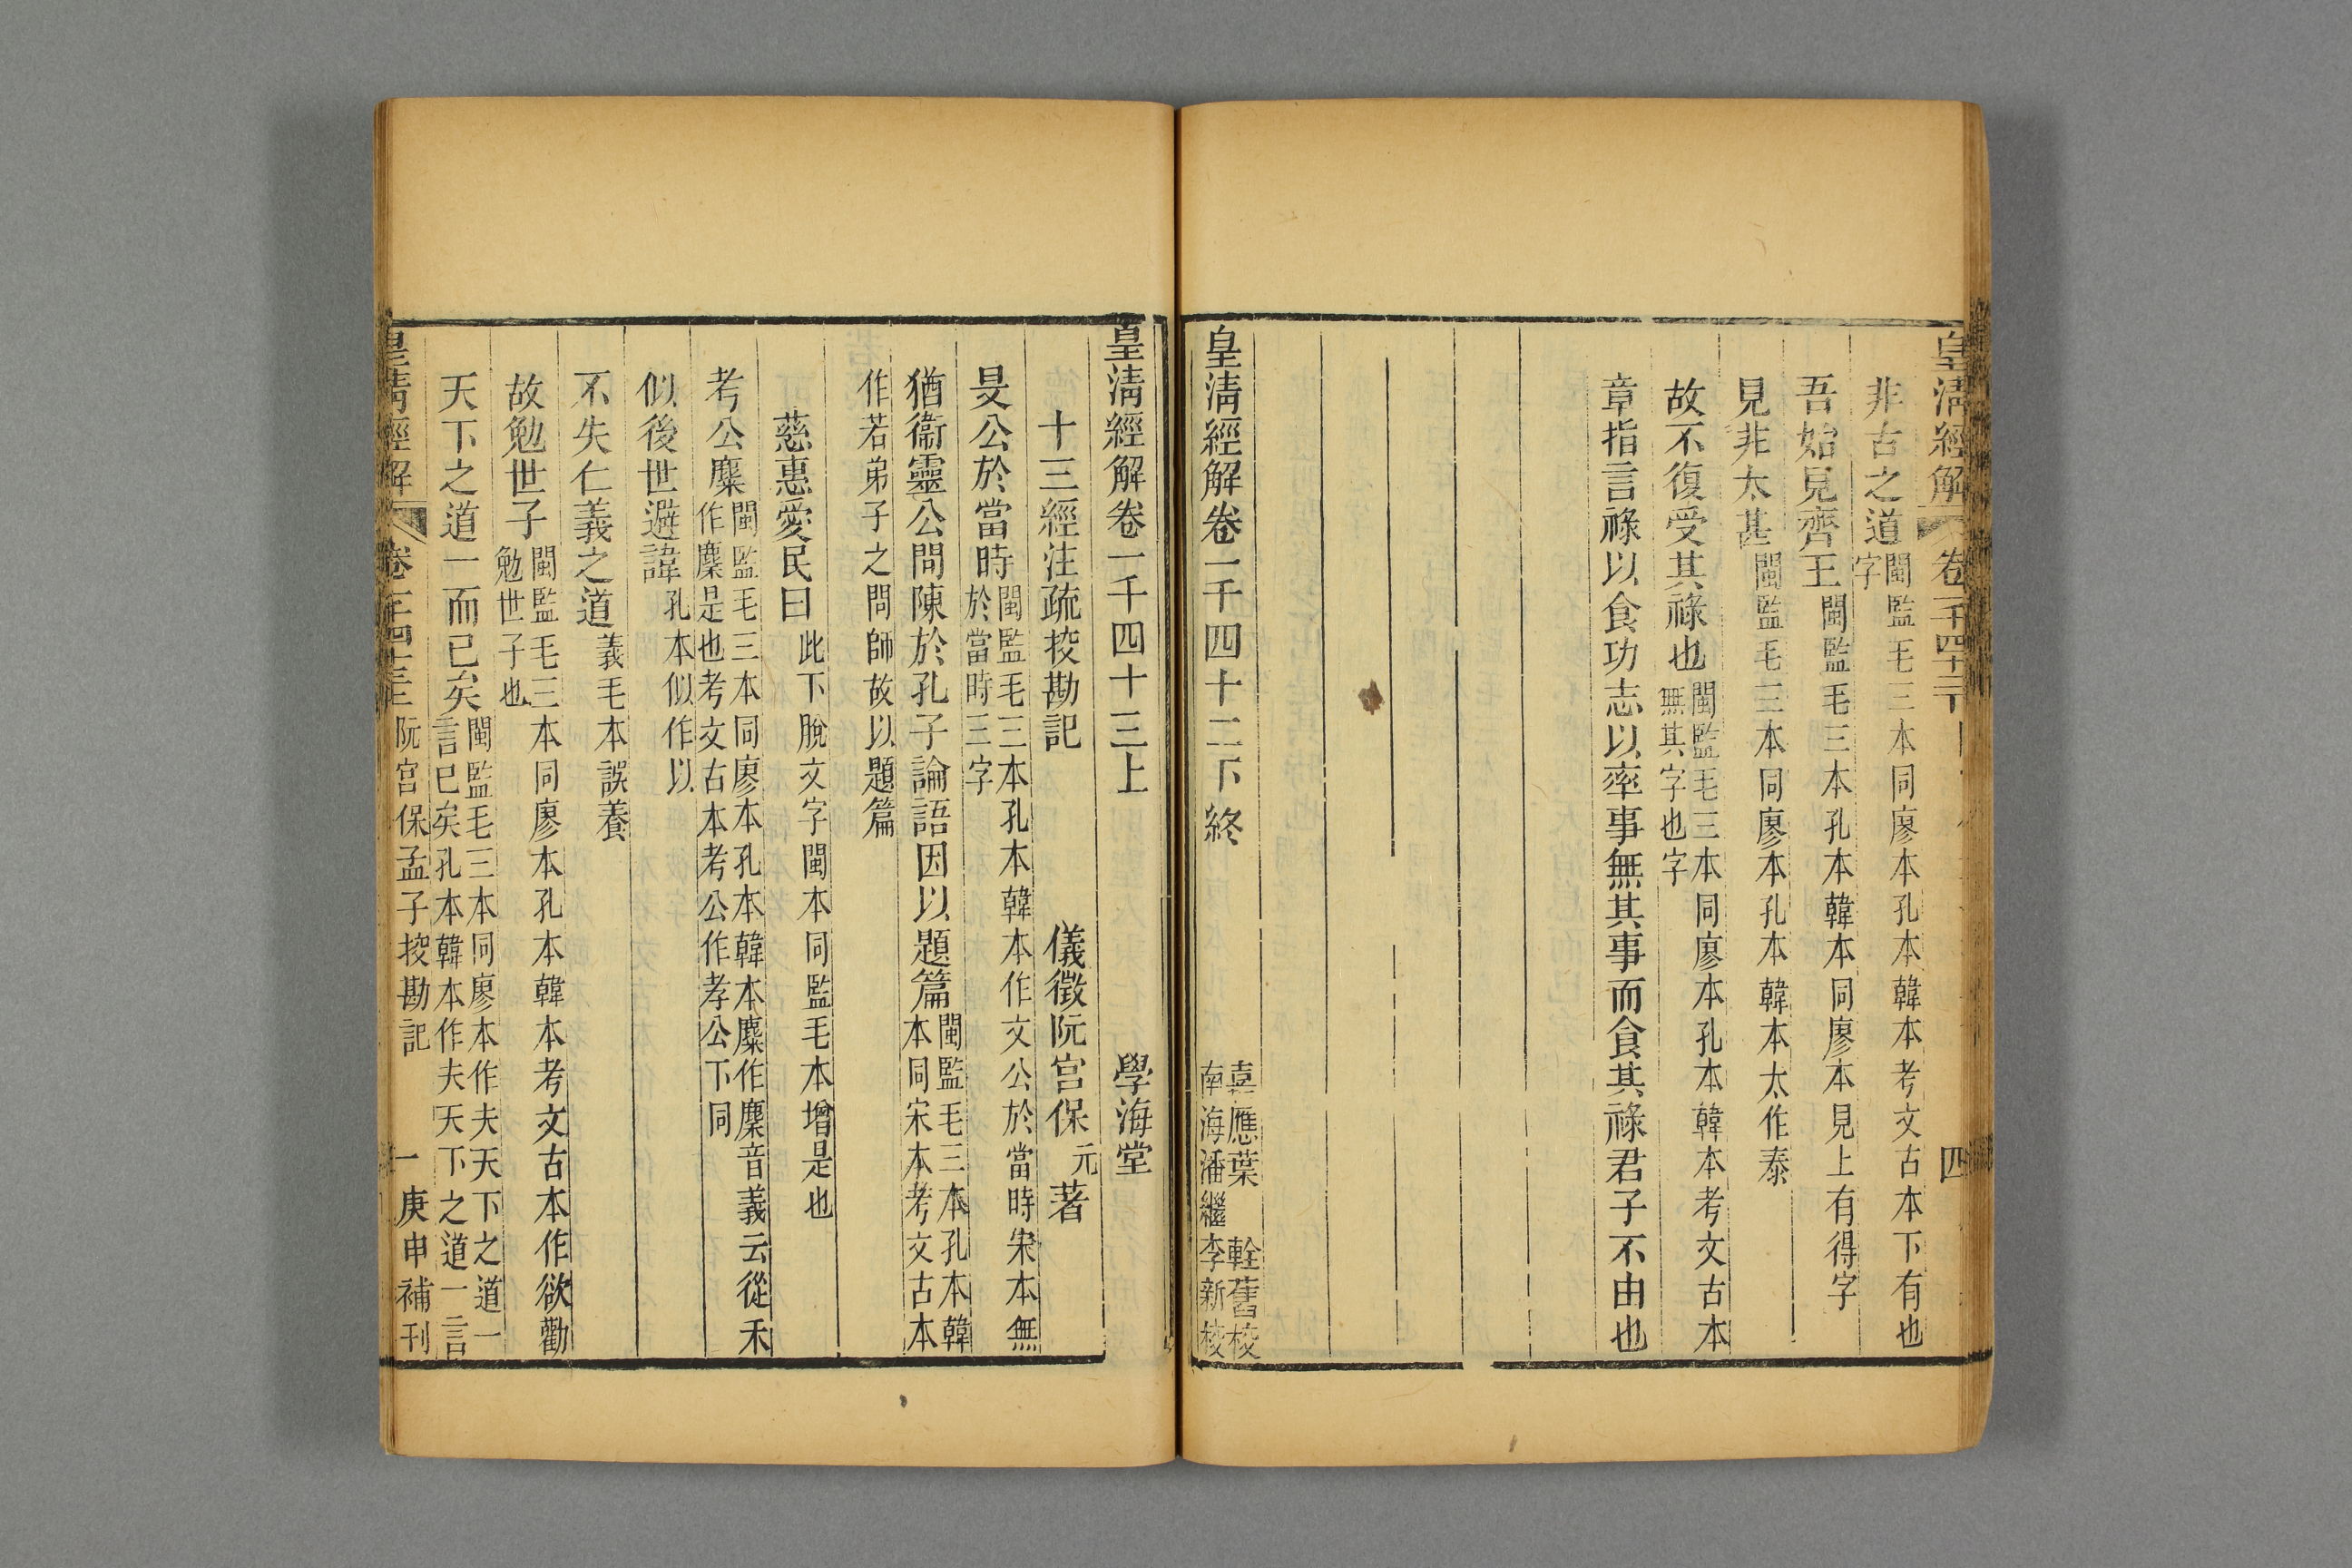 皇淸經解
卷一千四十二下
四
非古之道閩監毛三本同廖本孔本韓本考文古本下有也
字
吾始見齊王閩監毛三本孔本韓本同廖本見上有得字
見非太甚閩監毛三本同廖本孔本韓本太作泰
故不復受其祿也閩監毛三本同廖本孔本韓本考文古本
無其字也字
章指言祿以食功志以率事無其事而食其祿君子不由也
皇淸經解卷一千四十二下終
嘉應葉 輇舊校
南海潘繼李新校
皇淸經解卷一千四十三上
學海堂
十三經注疏挍勘記
儀徵阮宮保元著
旻公於當時閩監毛三本孔本韓本作文公於當時宋本無
於當時三字
猶衞靈公問陳於孔子論語因以題篇閩監毛三本孔本韓
本同宋本考文古本
作若弟子之問師故以題篇
慈惠愛民曰此下脫文字閩本同監毛本增是也
考公麋閩監毛三本同廖本孔本韓本麋作麇音義云從禾
作麇是也考文古本考公作孝公下同
似後世避諱孔本似作以
不失仁義之道義毛本誤養
故勉世子閩監毛三本同廖本孔本韓本考文古本作欲勸
勉世子也
天下之道一而已矣閩監毛三本同廖本作夫天下之道一
言已矣孔本韓本作夫天下之道一言
皇淸經解
卷一千四十三上
阮宮保孟子挍勘記
一
庚申補刊